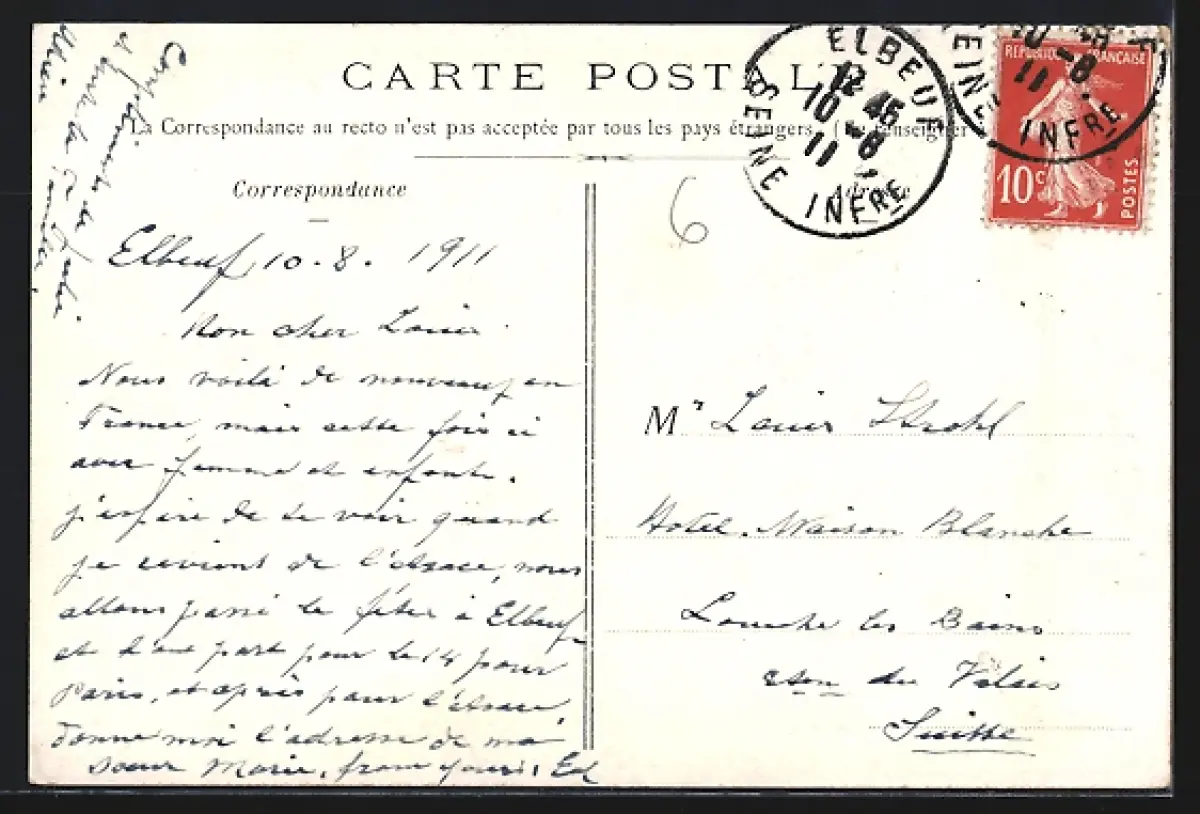 CARTE POSTALE
La Correspondance au recto n'est pas acceptée par tous les pays étrangers. (Se renseigner
Correspondance
Adresse
ELBEUF
SEINE INFRE
12 45
10 -8
11
ELBEUF
SEINE INFRE
10 -8
11
REPUBLIQUE FRANÇAISE
10 c
POSTES
6
Compliments de
Elbeuf 10.8. 1911
Mon cher Louis.
Nous voilà de nouveau en
France, mais cette fois ci
avec femme et enfants.
j'espire de te voir quand
je reviens de l'Elsace, nous
allons passé le fêtes à Elbeuf
et part pour le 14 pour
Paris, et après pour l'Elsace,
Donne moi l'adresse de ma
soeur Marie,
Mr Louis Strohl
Hotel Maison Blanche
Loueche les Bains
cton du Valais
Suisse